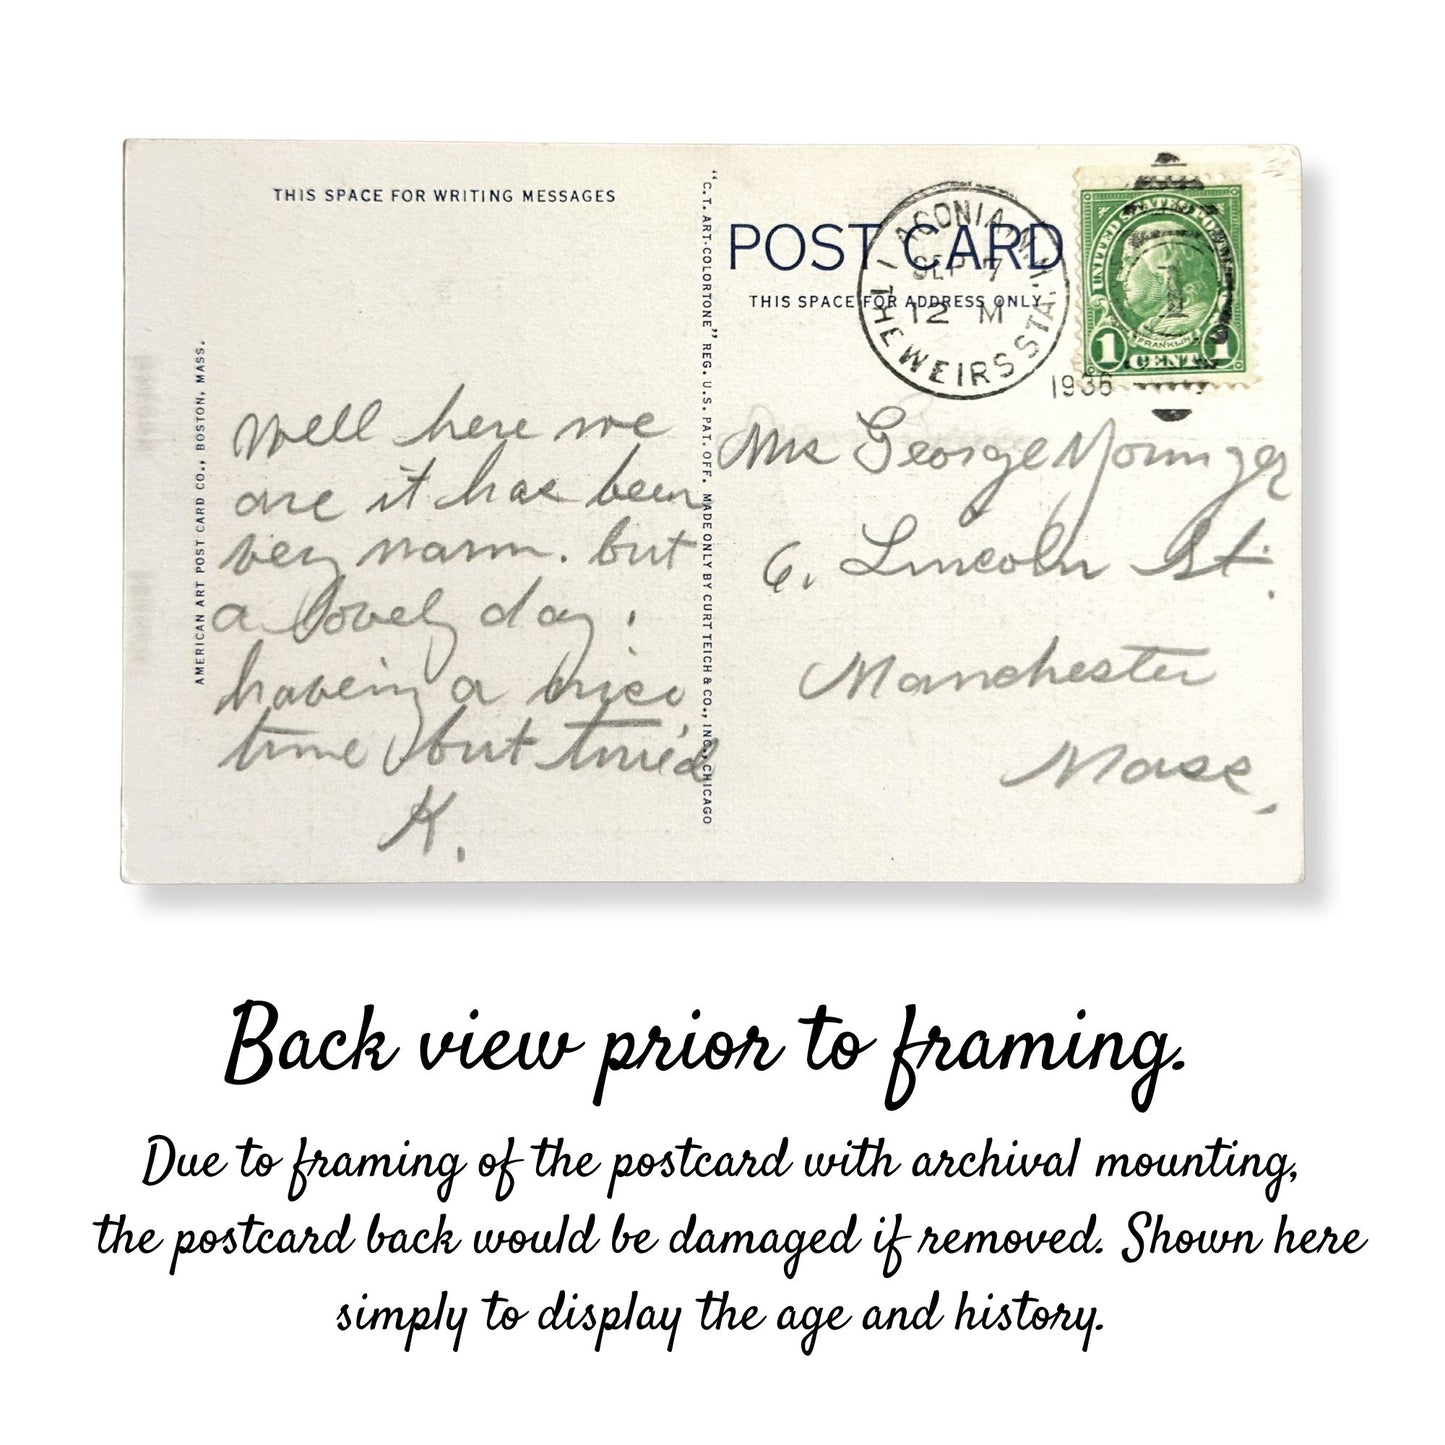 THIS SPACE FOR WRITING MESSAGES
Well here we
are it has been
very warm. but
a lovely day.
having a nice
time but tired
K.
AMERICAN ART POST CARD CO., BOSTON, MASS.
"C.T. ART-COLORTONE" REG. U.S. PAT. OFF. MADE ONLY BY CURT TEICH & CO., INC., CHICAGO
POST CARD
THIS SPACE FOR ADDRESS ONLY
LACONIA, N.H.
SEP 7
12 M
THE WEIRS STA.
1936
UNITED STATES POSTAGE
1
FRANKLIN
1 CENT 1
Mrs George Younger
6. Lincoln St.
Manchester
Mass.
Back view prior to framing.
Due to framing of the postcard with archival mounting,
the postcard back would be damaged if removed. Shown here
simply to display the age and history.